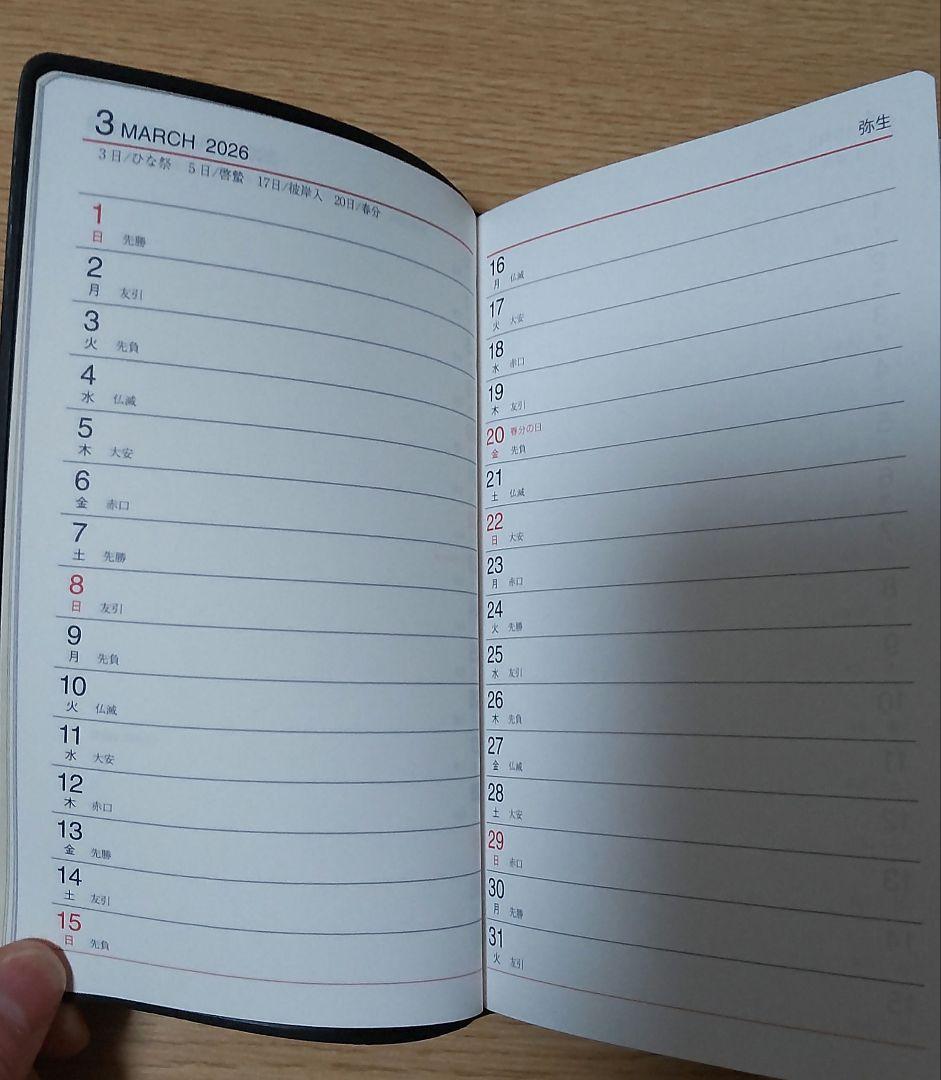 3 MARCH 2026
3日/ひな祭 5日/啓蟄 17日/彼岸入 20日/春分
1
日 先勝
2
月 友引
3
火 先負
4
水 仏滅
5
木 大安
6
金 赤口
7
土 先勝
8
日 友引
9
月 先負
10
火 仏滅
11
水 大安
12
木 赤口
13
金 先勝
14
土 友引
15
日 先負
弥生
16
月 仏滅
17
火 大安
18
水 赤口
19
木 友引
20 春分の日
金 先負
21
土 仏滅
22
日 大安
23
月 赤口
24
火 先勝
25
水 友引
26
木 先負
27
金 仏滅
28
土 大安
29
日 赤口
30
月 先勝
31
火 友引